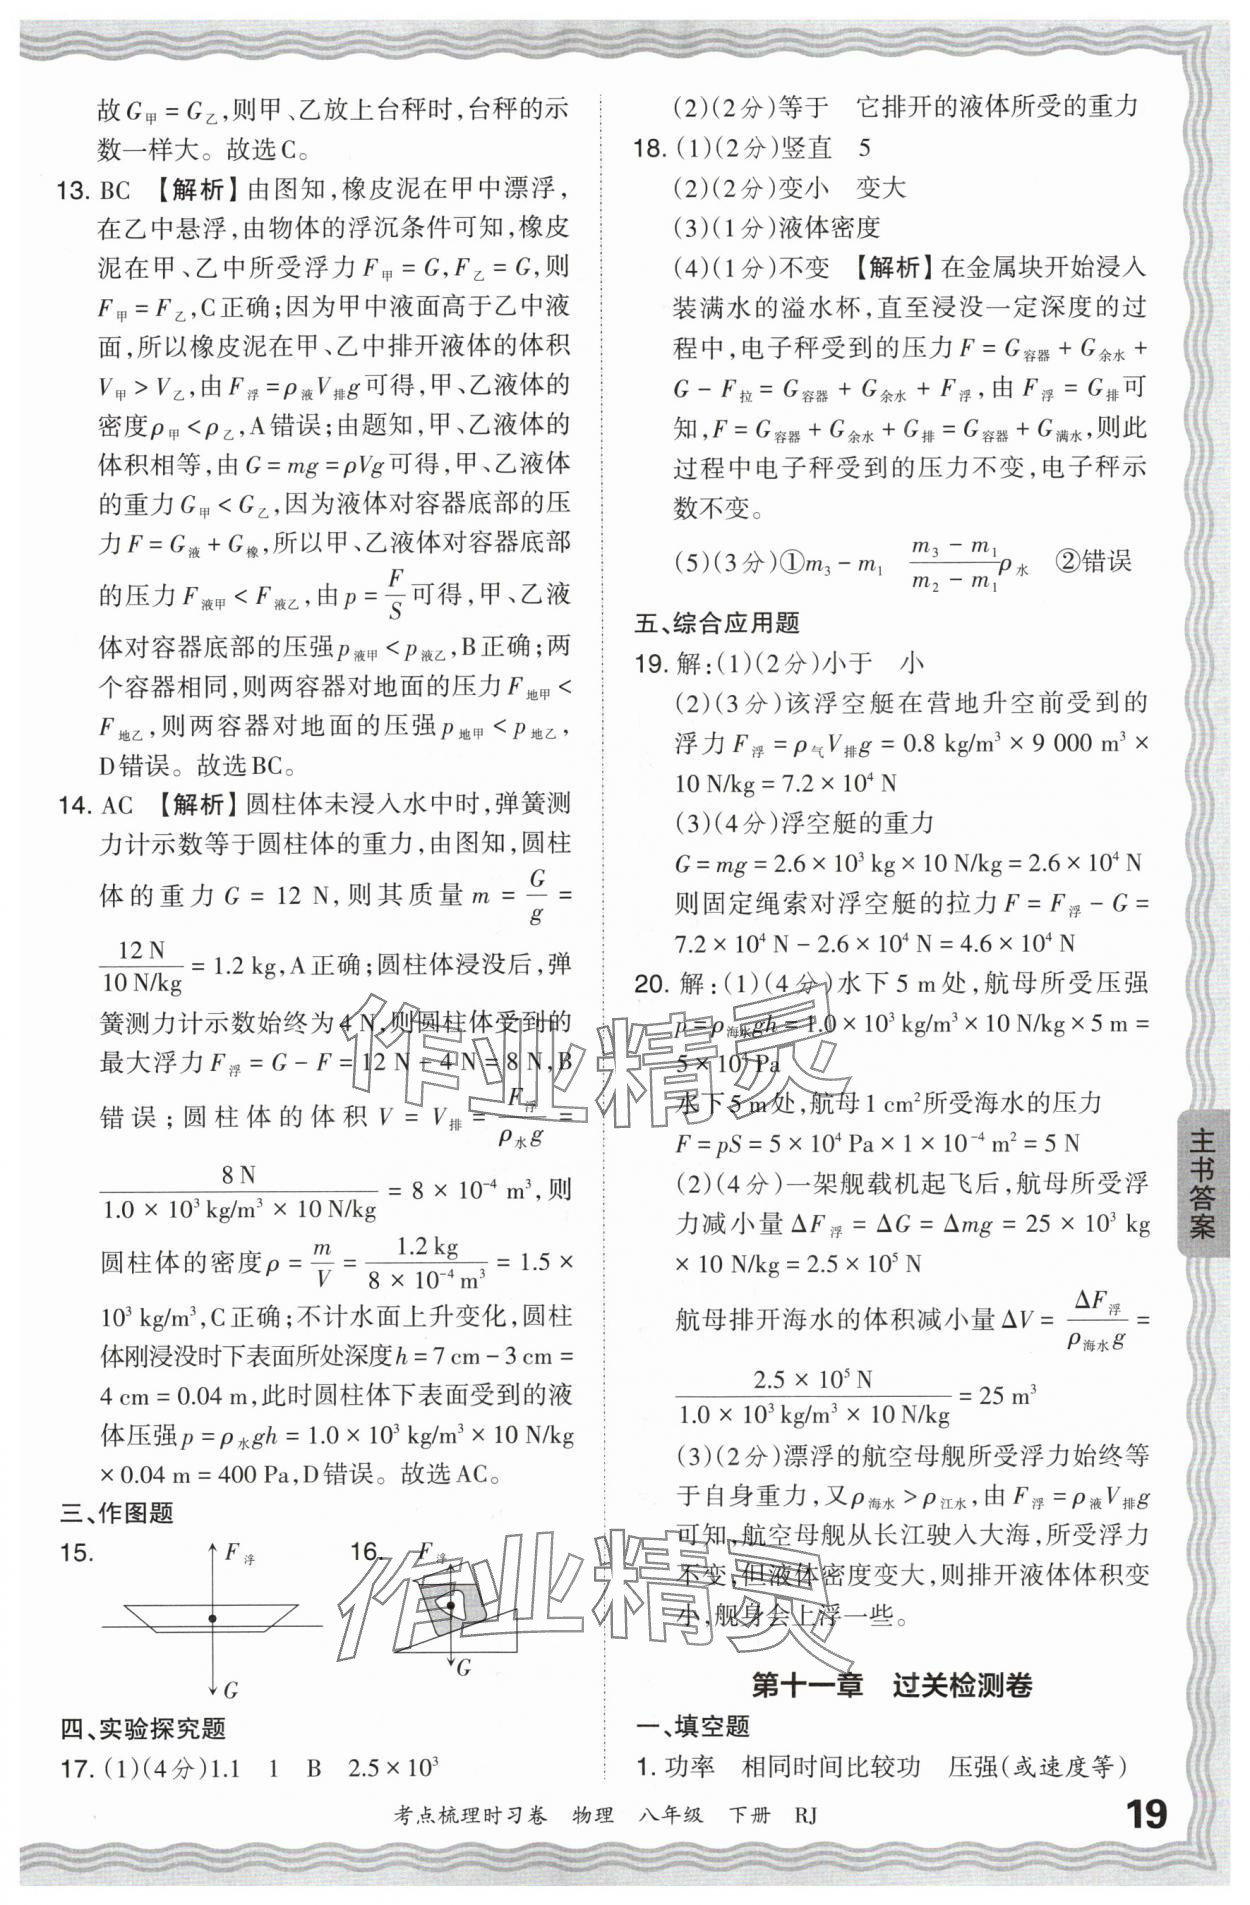 故G甲=G乙,则甲、乙放上台秤时,台秤的示
数一样大。故选C。
13. BC 【解析】由图知,橡皮泥在甲中漂浮,
在乙中悬浮,由物体的浮沉条件可知,橡皮
泥在甲、乙中所受浮力F甲=G,F乙=G,则
F甲=F乙,C正确;因为甲中液面高于乙中液
面,所以橡皮泥在甲、乙中排开液体的体积
V甲>V乙,由F浮=ρ液V排g可得,甲、乙液体的
密度ρ甲<ρ乙,A错误;由题知,甲、乙液体的
体积相等,由G=mg=ρVg可得,甲、乙液体
的重力G甲<G乙,因为液体对容器底部的压
力F=G液+G橡,所以甲、乙液体对容器底部
的压力F液甲<F液乙,由p=F/S可得,甲、乙液
体对容器底部的压强p液甲<p液乙,B正确;两
个容器相同,则两容器对地面的压力F地甲<
F地乙,则两容器对地面的压强p地甲<p地乙,
D错误。故选BC。
14. AC 【解析】圆柱体未浸入水中时,弹簧测
力计示数等于圆柱体的重力,由图知,圆柱
体的重力G=12 N,则其质量m=G/g=
12 N/10 N/kg=1.2 kg,A正确;圆柱体浸没后,弹
簧测力计示数始终为4 N,则圆柱体受到的
最大浮力F浮=G-F=12 N-4 N=8 N,B
错误;圆柱体的体积V=V排=F浮/ρ水g=
8 N/1.0×10³ kg/m³×10 N/kg=8×10⁻⁴ m³,则
圆柱体的密度ρ=m/V=1.2 kg/8×10⁻⁴ m³=1.5×
10³ kg/m³,C正确;不计水面上升变化,圆柱
体刚浸没时下表面所处深度h=7 cm-3 cm=
4 cm=0.04 m,此时圆柱体下表面受到的液
体压强p=ρ水gh=1.0×10³ kg/m³×10 N/kg
×0.04 m=400 Pa,D错误。故选AC。
三、作图题
15. F浮 G
16. F浮 G
四、实验探究题
17. (1)(4分)1.1 1 B 2.5×10³
(2)(2分)等于 它排开的液体所受的重力
18. (1)(2分)竖直 5
(2)(2分)变小 变大
(3)(1分)液体密度
(4)(1分)不变 【解析】在金属块开始浸入
装满水的溢水杯,直至浸没一定深度的过
程中,电子秤受到的压力F=G容器+G余水+
G-F拉=G容器+G余水+F浮,由F浮=G排可
知,F=G容器+G余水+G排=G容器+G满水,则此
过程中电子秤受到的压力不变,电子秤示
数不变。
(5)(3分)①m₃-m₁ (m₃-m₁)/(m₂-m₁)ρ水 ②错误
五、综合应用题
19. 解:(1)(2分)小于 小
(2)(3分)该浮空艇在营地升空前受到的
浮力F浮=ρ气V排g=0.8 kg/m³×9 000 m³×
10 N/kg=7.2×10⁴ N
(3)(4分)浮空艇的重力
G=mg=2.6×10³ kg×10 N/kg=2.6×10⁴ N
则固定绳索对浮空艇的拉力F=F浮-G=
7.2×10⁴ N-2.6×10⁴ N=4.6×10⁴ N
20. 解:(1)(4分)水下5 m处,航母所受压强
p=ρ海水gh=1.0×10³ kg/m³×10 N/kg×5 m=
5×10⁴ Pa
水下5 m处,航母1 cm²所受海水的压力
F=pS=5×10⁴ Pa×1×10⁻⁴ m²=5 N
(2)(4分)一架舰载机起飞后,航母所受浮
力减小量ΔF浮=ΔG=Δmg=25×10³ kg
×10 N/kg=2.5×10⁵ N
航母排开海水的体积减小量ΔV=ΔF浮/ρ海水g=
2.5×10⁵ N/1.0×10³ kg/m³×10 N/kg=25 m³
(3)(2分)漂浮的航空母舰所受浮力始终等
于自身重力,又ρ海水>ρ江水,由F浮=ρ液V排g
可知,航空母舰从长江驶入大海,所受浮力
不变,但液体密度变大,则排开液体体积变
小,舰身会上浮一些。
第十一章 过关检测卷
一、填空题
1. 功率 相同时间比较功 压强(或速度等)
主书答案
作业精灵
作业精灵
考点梳理时习卷 物理 八年级 下册 RJ
19